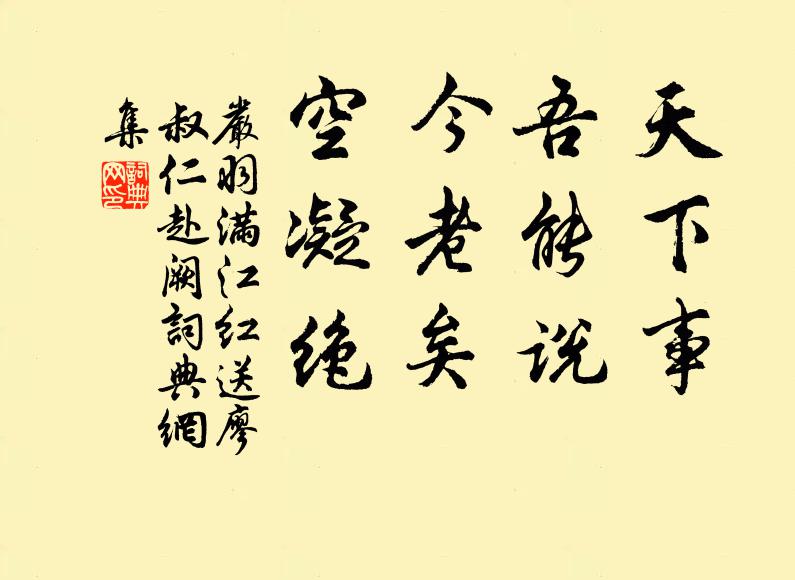 天下事
吾能说
今老矣
空凝绝
嚴羽满江红送廖
叔仁赴阙詞典網
集
詞典
网印